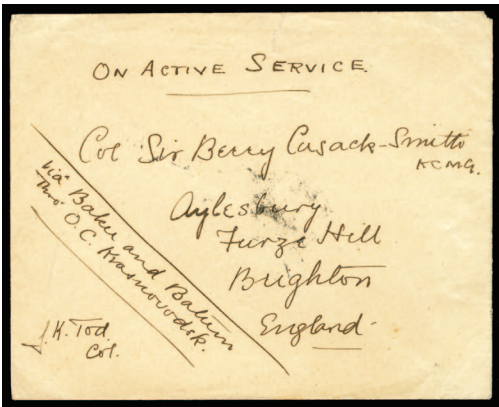 ON ACTIVE SERVICE.
Col Sir Berry Cusack-Smith
KCMG.
Aylesbury
Furze Hill
Brighton
England.
via Baku and Batum
Thro' O.C. Krasnovodsk.
J.K. Tod.
Col.